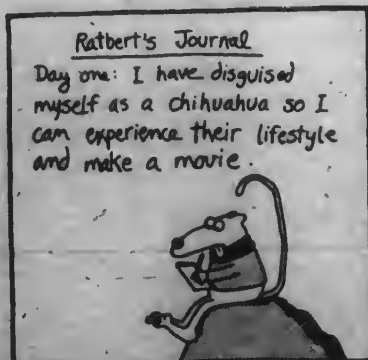 Ratbert's Journal
Day one: I have disguised
myself as a chihuahua so I
can experience their lifestyle
and make a movie.